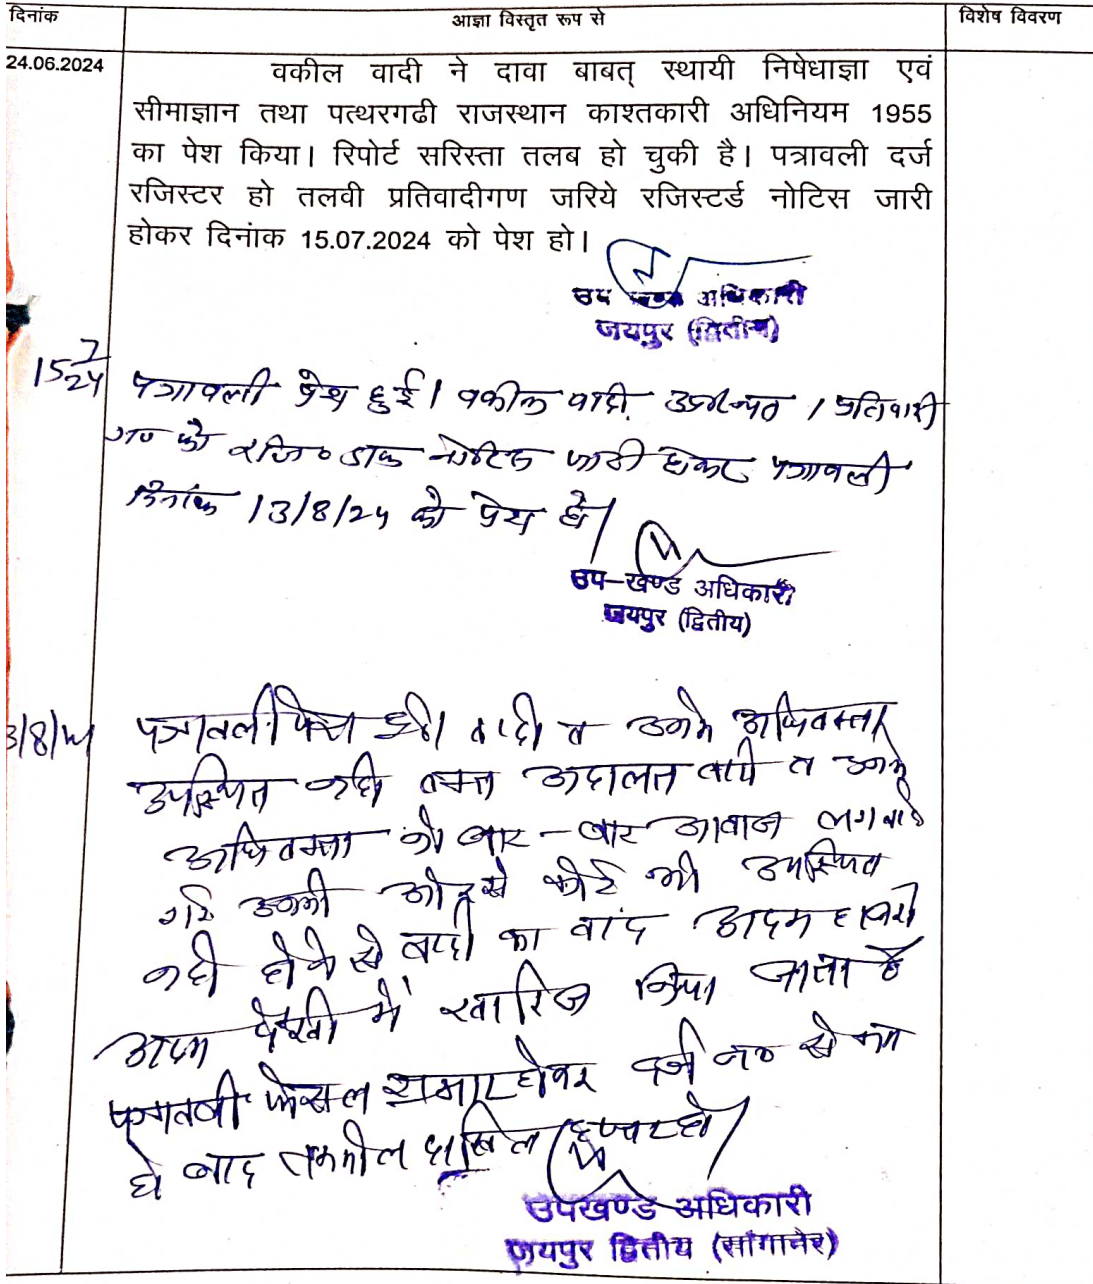 दिनांक
आज्ञा विस्तृत रूप से
विशेष विवरण
24.06.2024
वकील वादी ने दावा बाबत् स्थायी निषेधाज्ञा एवं
सीमाज्ञान तथा पत्थरगढी राजस्थान काश्तकारी अधिनियम 1955
का पेश किया। रिपोर्ट सरिस्ता तलब हो चुकी है। पत्रावली दर्ज
रजिस्टर हो तलवी प्रतिवादीगण जरिये रजिस्टर्ड नोटिस जारी
होकर दिनांक 15.07.2024 को पेश हो।
उप खण्ड अधिकारी
जयपुर (द्वितीय)
15/7/24
पत्रावली पेश हुई। वकील वादी उपस्थित। प्रतिवादी
गण को रजि० डाक नोटिस जारी होकर पत्रावली
दिनांक 13/8/24 को पेश हो।
उप-खण्ड अधिकारी
जयपुर (द्वितीय)
3/8/24
पत्रावली पेश हुई। वादी व उनके अधिवक्ता
उपस्थित नही वक्त अदालत वादी व उनके
अधिवक्ता को बार-बार आवाज लगवाई
गई उनकी ओर से कोई भी उपस्थित
नही होने से वादी का वाद अदम हाजरी
अदम पैरवी में खारिज किया जाता है
पत्रावली फैसल शुमार होकर दर्ज नं० से कम
हो बाद तकमील दाखिल दफ्तर हो।
उपखण्ड अधिकारी
जयपुर द्वितीय (सांगानेर)